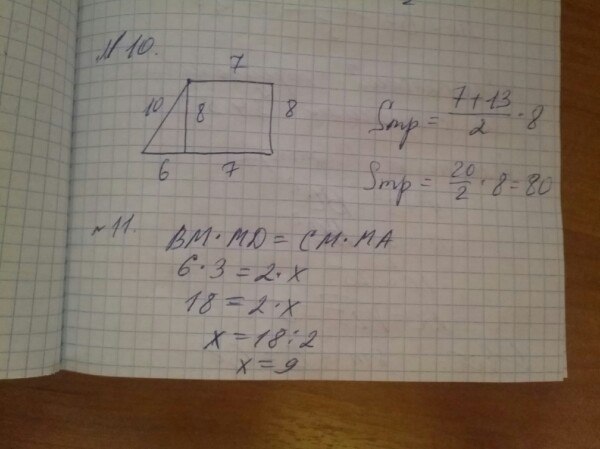 №10.
7
10 8 8
6 7
Sтр = 7+13/2 · 8
Sтр = 20/2 · 8 = 80
№11.
BM·MD = CM·MA
6·3 = 2·x
18 = 2·x
x = 18:2
x = 9